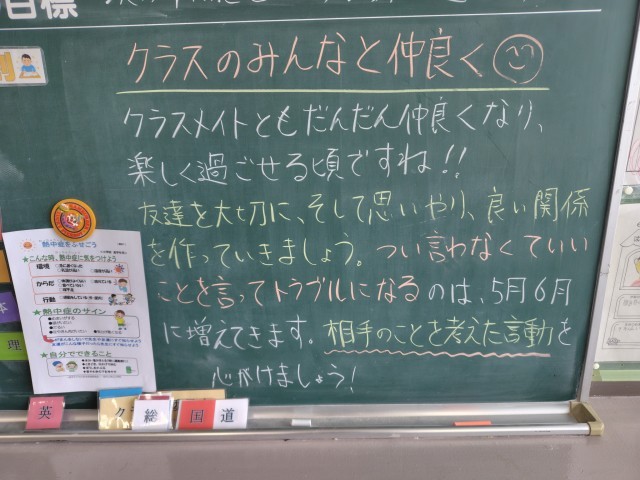 目標
クラスのみんなと仲良く
クラスメイトともだんだん仲良くなり、
楽しく過ごせる頃ですね!!
友達を大切に、そして思いやり、良い関係
を作っていきましょう。つい言わなくていい
ことを言ってトラブルになるのは、5月6月
に増えてきます。相手のことを考えた言動を
心がけましょう!
熱中症をふせごう
★こんな時、熱中症に気をつけよう
環境
からだ
行動
★熱中症のサイン
★自分でできること
体
理
英
総
国
道